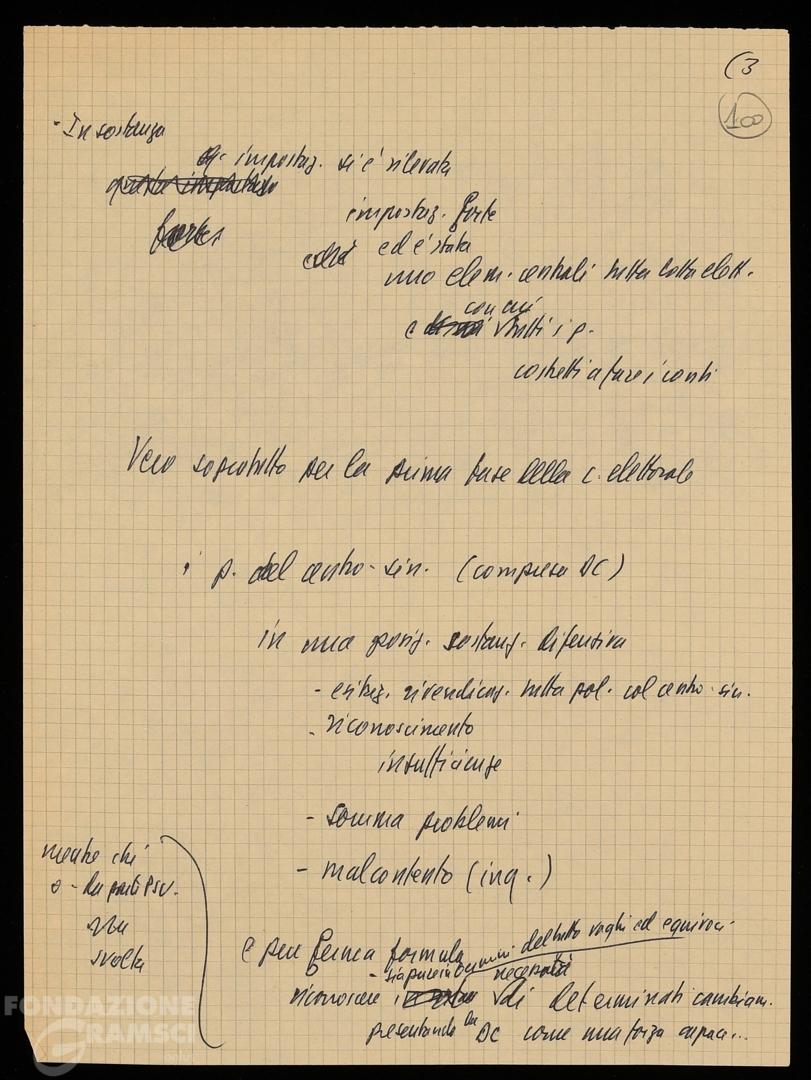 (3
100
- In sostanza
impostaz. si è rilevata
questa impostaz
impostaz. forte
forte
ed è stata
uno elem. centrali tutta lotta elett.
con cui
e tutti i p.
costretti a fare i conti
Vero soprattutto per la prima fase della c. elettorale
i p. del centro-sin. (compresa DC)
in una posiz. sostanz. difensiva
- esitaz. rivendicaz. tutta pol. col centro-sin.
- riconoscimento
insufficienze
- somma problemi
- malcontento (inq.)
mentre chi
o - da parte PSU.
una
svolta
e pur ferma formula
- sia pure in termini del tutto vaghi ed equivoci -
necessità
riconoscere di determinati cambiam.
presentando la DC come una forza capace...
FONDAZIONE
GRAMSCI